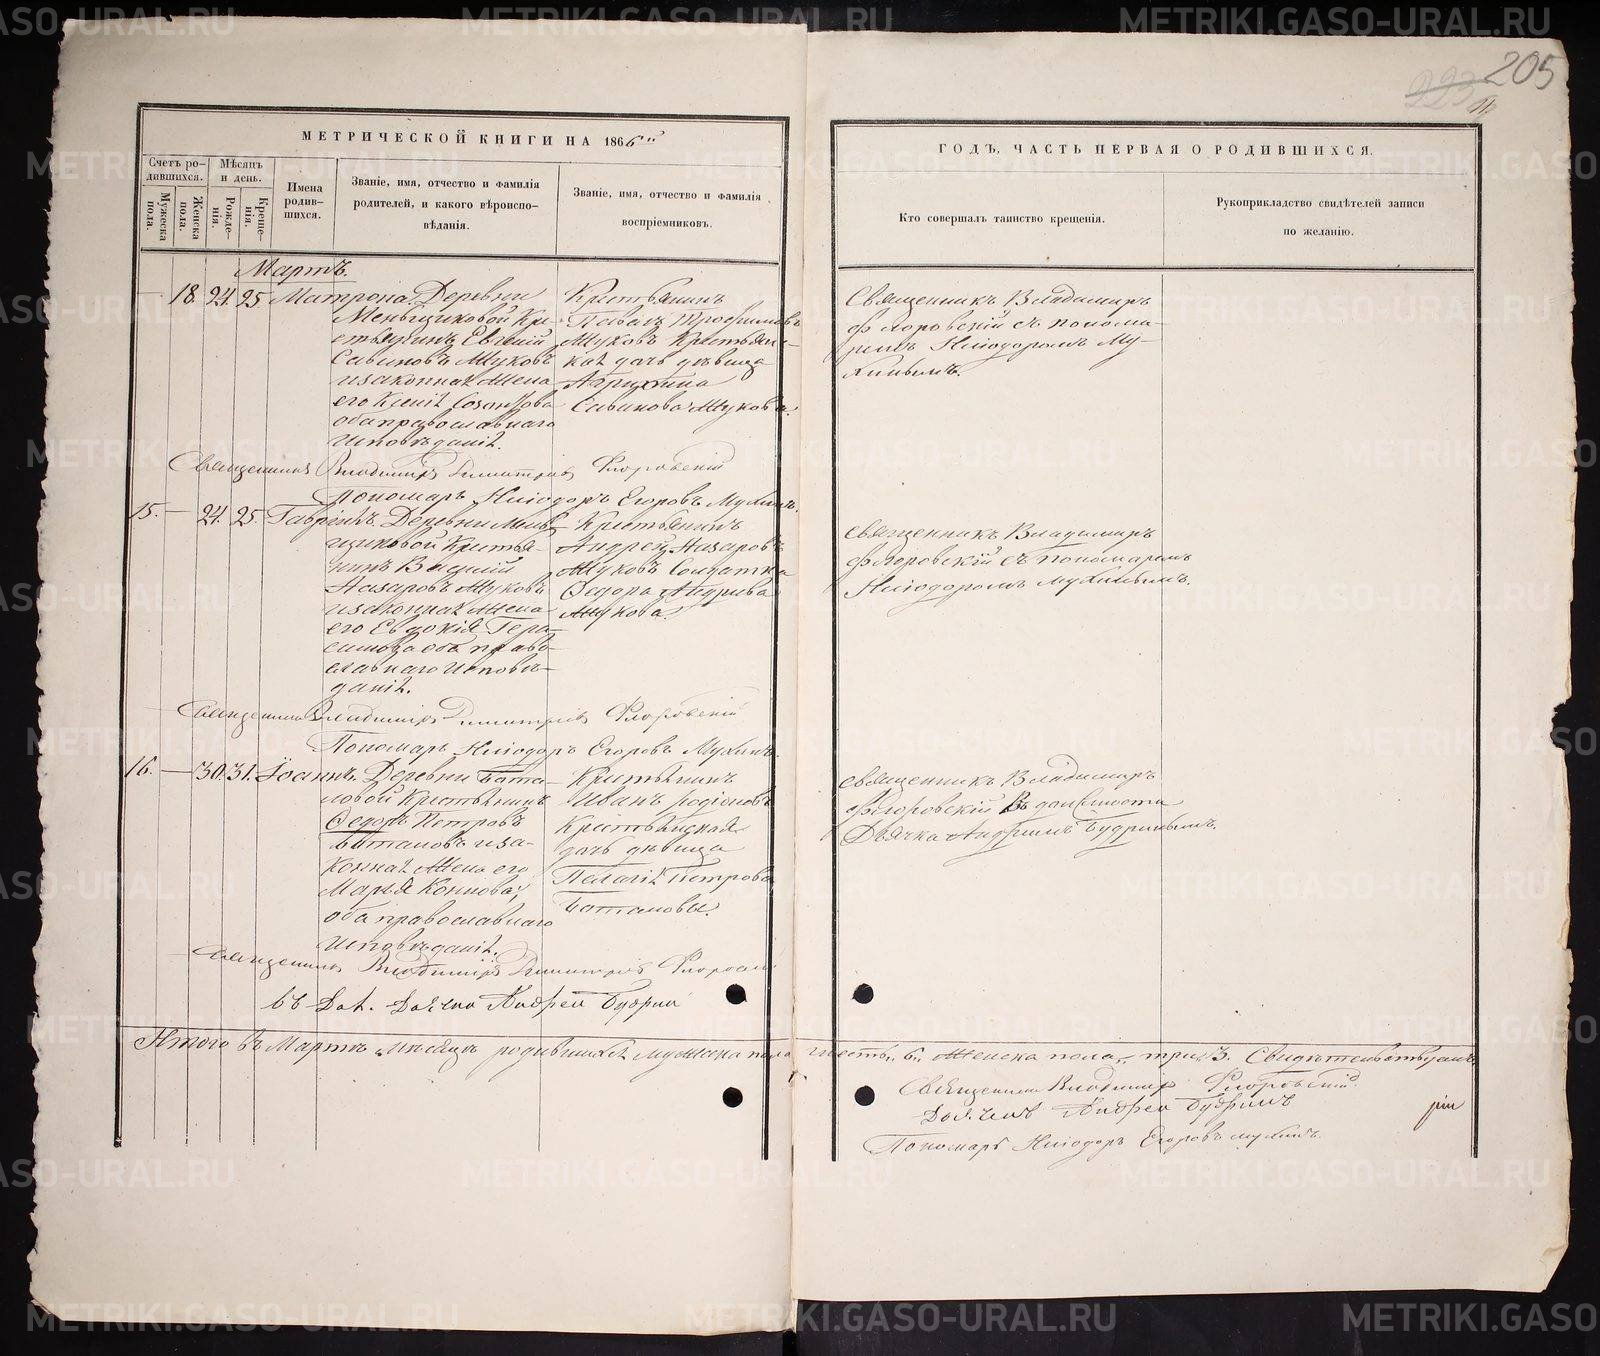 205
223
МЕТРИЧЕСКОЙ КНИГИ НА 1866й
Счетъ родившихся.
Мужеска пола.
Женска пола.
Мѣсяцъ и день.
Рожденія.
Крещенія.
Имена родившихся.
Званіе, имя, отчество и фамилія
родителей, и какого вѣроиспо-
вѣданія.
Званіе, имя, отчество и фамилія
воспріемниковъ.
ГОДЪ, ЧАСТЬ ПЕРВАЯ О РОДИВШИХСЯ.
Кто совершалъ таинство крещенія.
Рукоприкладство свидѣтелей записи
по желанію.
Мартъ.
18. 24. 25. Матрона. Деревни
Меньщиковой Кре-
стьянинъ Евгений
Савиновъ Жуковъ
и законная жена
его Ксенія Созонтова
оба православнаго
исповѣданія.
Крестьянинъ
Павелъ Трофимовъ
Жуковъ Крестьянс-
кая дочь дѣвица
Агрипина
Савинова Жукова.
Священникъ Владимиръ
Флоровскій съ понома-
ремъ Иліодоромъ Му-
хинымъ.
Священникъ Владимиръ Димитріевъ Флоровскій
Пономарь Иліодоръ Егоровъ Мухинъ.
15. 24. 25. Гавріилъ. Деревни Мень-
щиковой Крестья-
нинъ Василій
Назаровъ Жуковъ
и законная жена
его Евдокія Гера-
симова оба право-
славнаго исповѣ-
данія.
Крестьянинъ
Андрей Назаровъ
Жуковъ Солдатка
Федора Андреева
Жукова.
священникъ Владимиръ
Флоровскій съ пономаремъ
Иліодоромъ Мухинымъ.
Священникъ Владимиръ Димитріевъ Флоровскій
Пономарь Иліодоръ Егоровъ Мухинъ.
16. 30. 31. Іоаннъ. Деревни Бата-
ловой Крестьянинъ
Федоръ Петровъ
Баталовъ и за-
конная жена его
Марья Конова,
оба православнаго
исповѣданія.
Крестьянинъ
Иванъ Родіоновъ
Крестьянская
дочь дѣвица
Пелагія Петрова
Баталовы.
священникъ Владимиръ
Флоровскій въ должности
Дьячка Андреемъ Будринымъ.
Священникъ Владимиръ Димитріевъ
въ Дол. Дьячка Андрей Будринъ
Итого въ Мартѣ мѣсяцѣ родившихся мужеска пола шесть, 6. Женска пола, три, 3. Свидѣтельствуемъ
Священникъ Владимиръ Флоровскій
Дьячекъ Андрей Будринъ
Пономарь Иліодоръ Егоровъ Мухинъ.